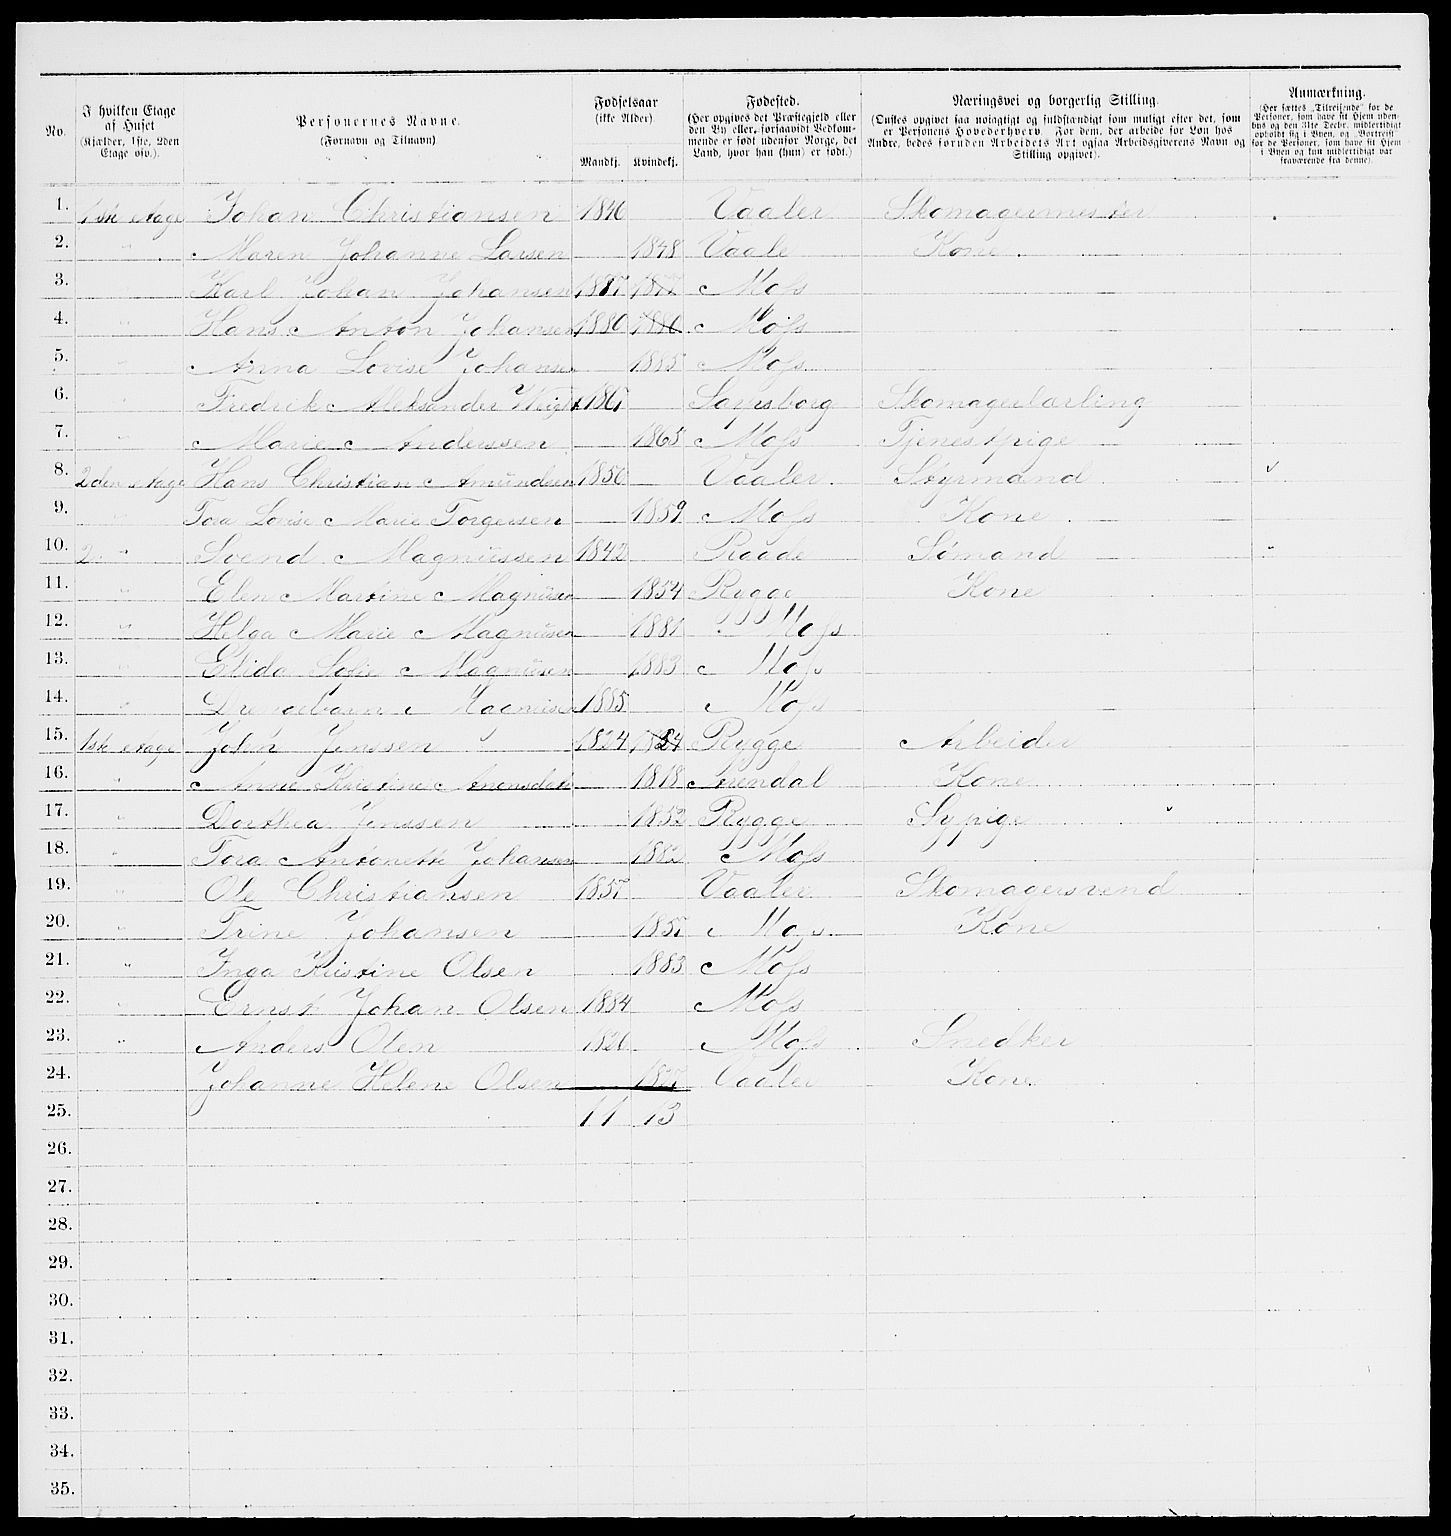 No. I hvilken Etage af Huset (Kjælder, 1ste, 2den Etage osv.). Personernes Navne. (Fornavn og Tilnavn) Fødselsaar (ikke Alder) Mandkj. Kvindekj. Fødested. (Her opgives det Præstegjeld eller den By eller, forsaavidt Vedkommende er født udenfor Norge, det Land, hvor han (hun) er født.) Næringsvei og borgerlig Stilling. (Ønskes opgivet saa nøiagtigt og fuldstændigt som muligt efter det, som er Personens Hovederhverv. For dem, der arbeide for Løn hos Andre, bedes foruden Arbeidets Art ogsaa Arbeidsgiverens Navn og Stilling opgivet). Anmærkning. (Her sættes „Tilreisende" for de Personer, som have sit Hjem udenbys og den 31te Decbr. midlertidigt opholdt sig i Byen, og „Bortreist" for de Personer, som have sit Hjem i Byen og kun midlertidigt var fraværende fra denne).
1. 1ste etage Johan Christiansen 1846 Vaaler Skomagermester
2. " Maren Johanne Larsen 1848 Vaale Kone
3. " Karl Johan Johansen 1877 1877 Moss
4. " Hans Anton Johansen 1880 1880 Moss
5. " Anna Lovise Johansen 1885 Moss
6. " Fredrik Aleksander Sarpsborg Skomagerlærling
7. " Marie Anderssen 1865 Moss Tjenestpige
8. 2den etage Hans Christian Amundsen 1850 Vaaler Styrmand
9. " Tora Lovise Marie Torgersen 1859 Moss Kone
10. 2 " Svend Magnussen 1842 Raade Sømand
11. " Elen Martine Magnusen 1854 Rygge Kone
12. " Helga Marie Magnusen 1881 Moss
13. " Elida Sofie Magnusen 1883 Moss
14. " Drengebarn Magnusen 1885 Moss
15. 1ste etage John Jenssen 1824 1824 Rygge Arbeider
16. " Anne Kristine 1818 Arendal Kone
17. " Dorthea Jenssen 1852 Rygge Sypige
18. " Tora Antonette Johansen 1882 Moss
19. " Ole Christiansen 1857 Vaaler Skomagersvend
20. " Trine Johansen 1857 Moss Kone
21. " Inga Kristine Olsen 1883 Moss
22. " Ernst Johan Olsen 1884 Moss
23. " Anders Olen 1820 Moss Snedker
24. Johanne Helene Olsen Vaaler Kone
25. 11 13
26.
27.
28.
29.
30.
31.
32.
33.
34.
35.